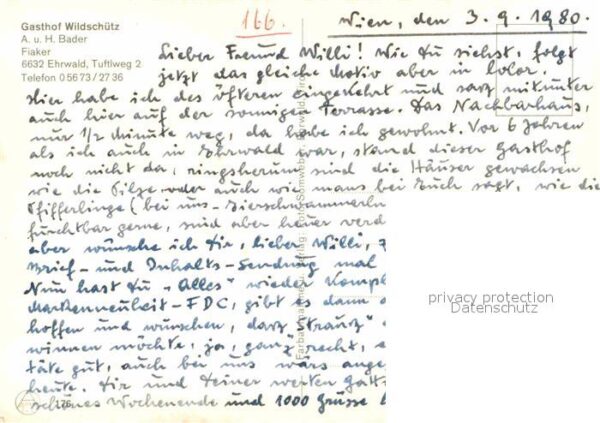 Gasthof Wildschütz
A. u. H. Bader
Fiaker
6632 Ehrwald, Tuftlweg 2
Telefon 0 56 73 / 27 36
166.
Wien, den 3. 9. 1980.
Lieber Freund Willi! Wie Du siehst, folgt
jetzt das gleiche Motiv aber in Color.
Hier habe ich des öfteren eingekehrt und sasz mitunter
auch hier auf der sonnigen Terrasse. Das Nachbarhaus,
nur 1/2 Minute weg, da habe ich gewohnt. Vor 6 Jahren
als ich auch in Ehrwald war, stand dieser Gasthof
noch nicht da, ringsherum sind die Häuser gewachsen
wie die Pilze, oder auch wie mans bei Euch sagt, wie die
Pfifferlinge (bei uns - Eierschwammerln
furchtbar gerne, sind aber heuer verd
aber wünsche ich Dir, lieber Willi, z
Brief- und Inhalts-Sendung mal
Nun hast Du "Alles" wieder kompl
Markenneuheit - FDC, gibt es dann
hoffen und wünschen, dasz Strausz"
winnen möchte, ja, ganz recht, e
täte gut, auch bei uns wars ange
heute. Dir und Deiner werten Gatt
schönes Wochenende und 1000 Grüsse
176
privacy protection
Datenschutz